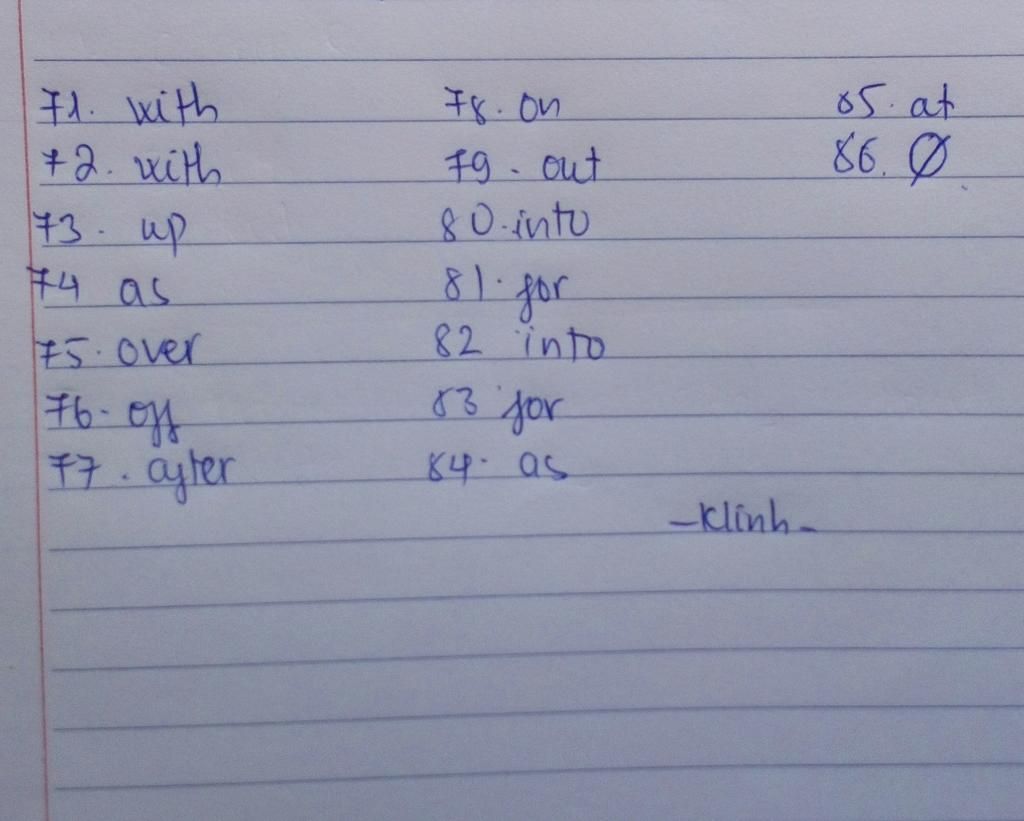 71. with
72. with
73. up
74 as
75. over
76. off
77. after
78. on
79. out
80. into
81. for
82 into
83 for
84. as
85. at
86. Ø
-Klinh-